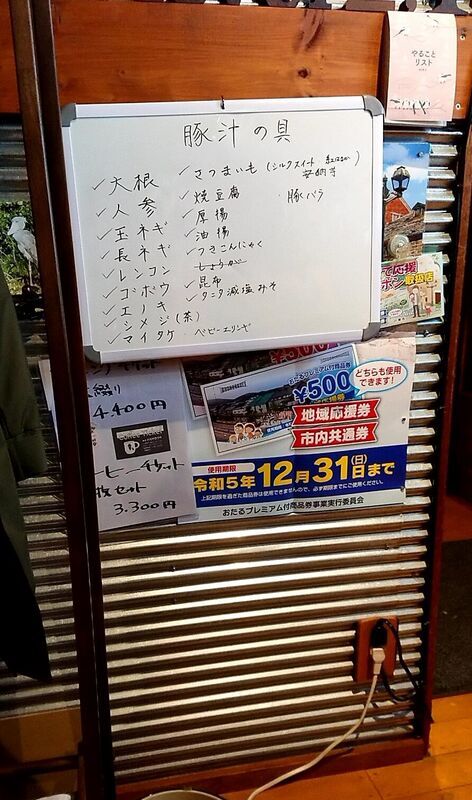 やること
リスト
豚汁の具
✓大根
✓人参
✓玉ネギ
✓長ネギ
✓レンコン
✓ゴボウ
✓エノキ
✓シメジ(茶)
✓マイタケ ・ベビーエリンギ
✓さつまいも(シルクスイート 紅はるか
安納芋)
✓焼豆腐 ・豚バラ
✓厚揚
✓油揚
✓つきこんにゃく
しょうが
✓昆布
✓タニタ減塩みそ
で応援
ポン取扱店
4.400円
3.300円
枚セット
¥500
どちらも使用
できます!
地域応援券
市内共通券
使用期限
令和5年12月31日(日)まで
上記期限を過ぎた商品券は使用できませんので、必ず期限までにご使用ください。
おたるプレミアム付商品券事業実行委員会